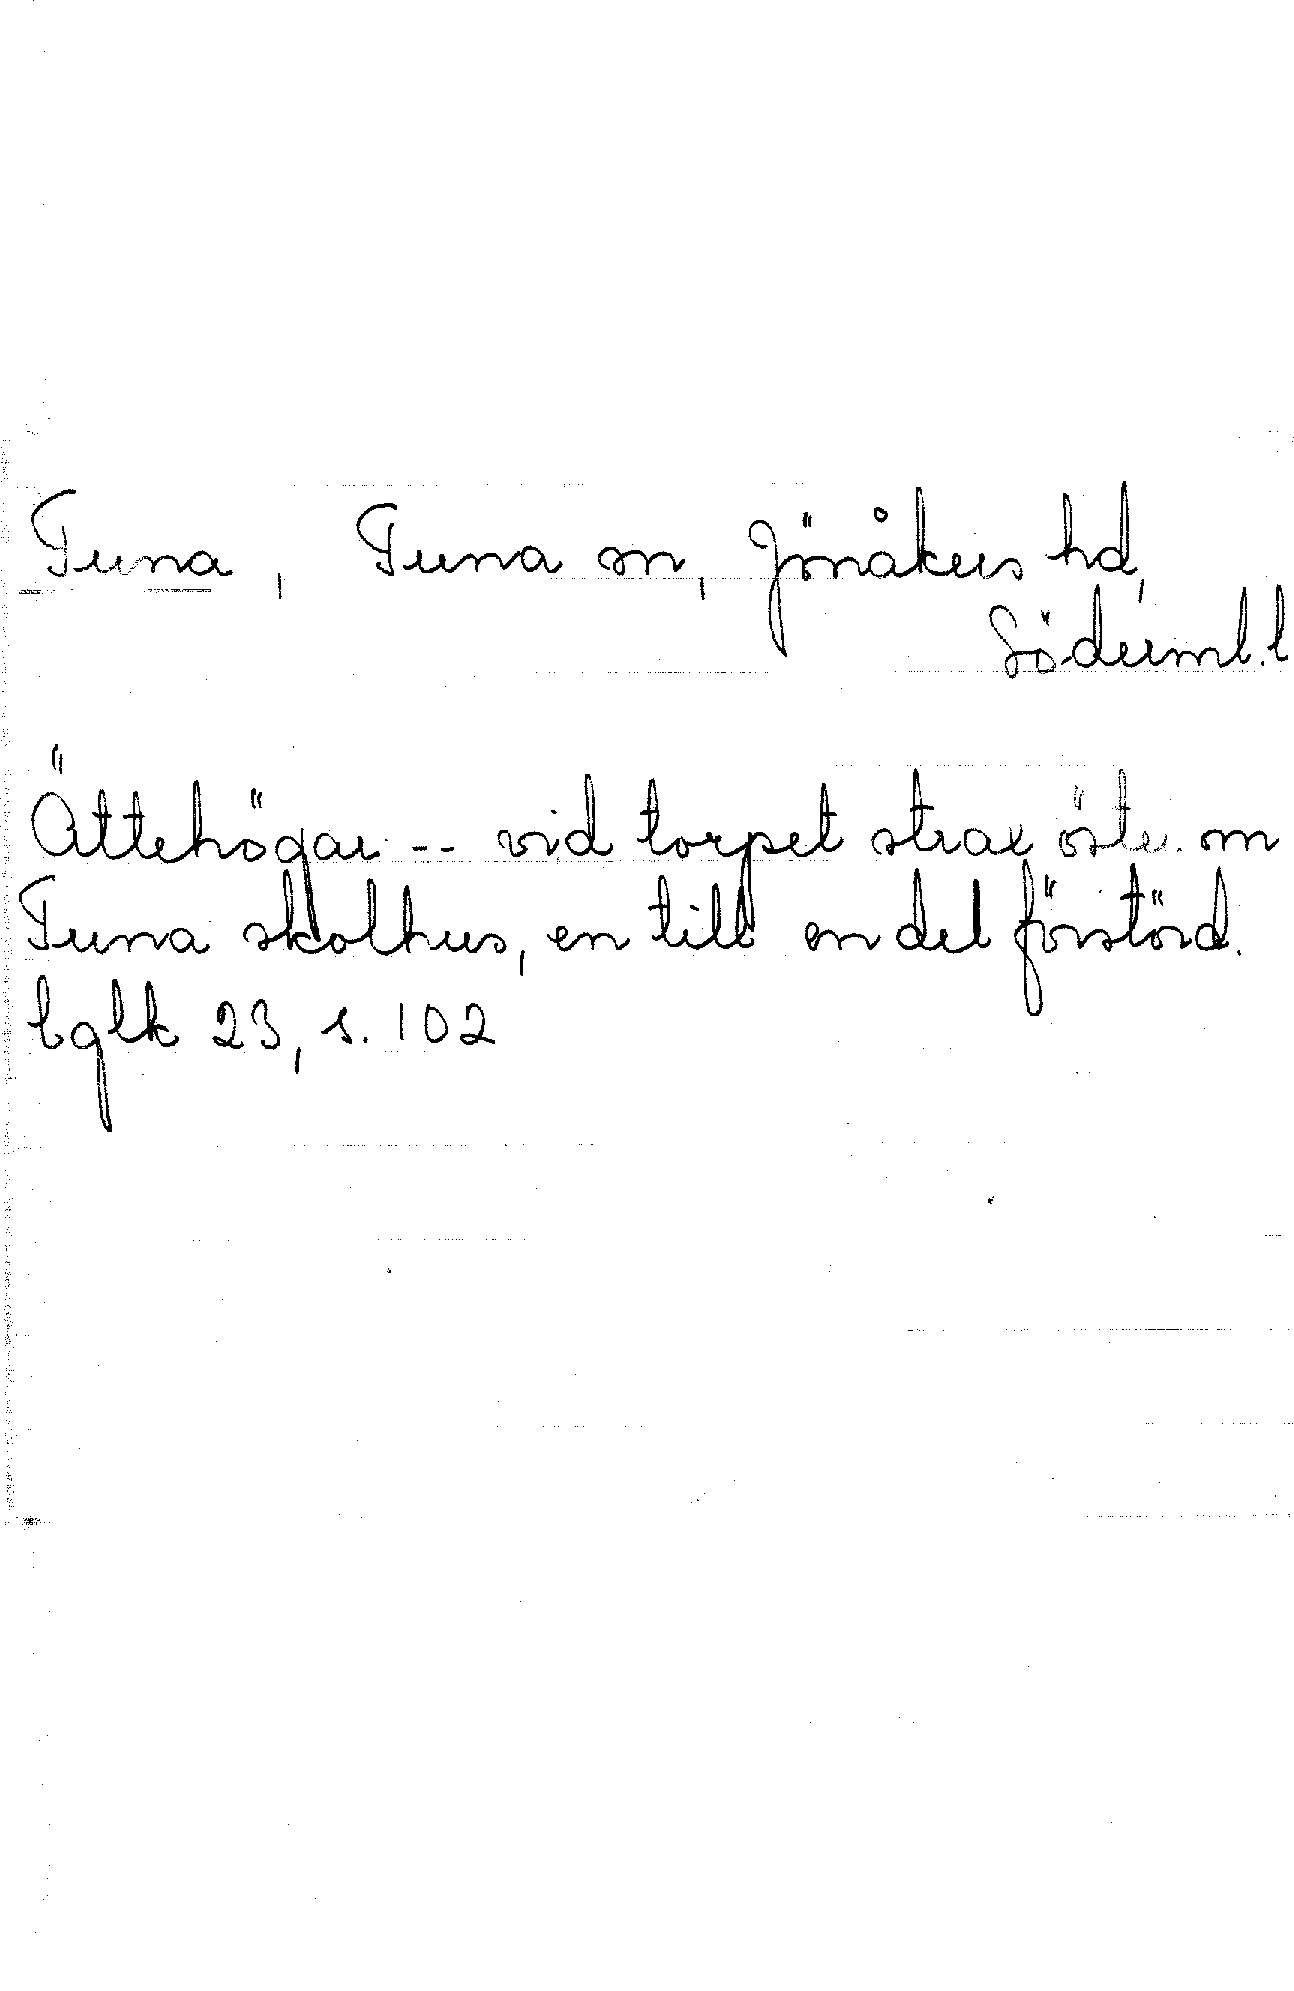 Tuna, Tuna sn, Jönåkers hd,
Söderml. l
Ättehögar -- vid torpet strax öster om
Tuna skolhus, en till en del förstörd.
bglk 23, s. 102